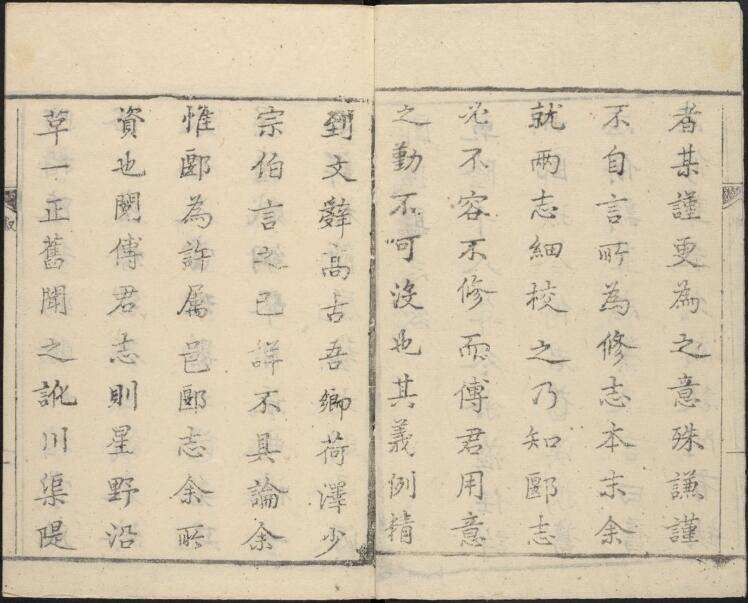 者某謹更為之意殊謙謹
不自言所為修志本末余
就兩志細校之乃知郾志
必不容不修而傅君用意
之勤不可沒也其義例精
到文辭高古吾鄉荷澤少
宗伯言之已詳不具論余
惟郾為許属邑郾志余所
資也閱傅君志則星野沿
草一正舊聞之訛川渠隄